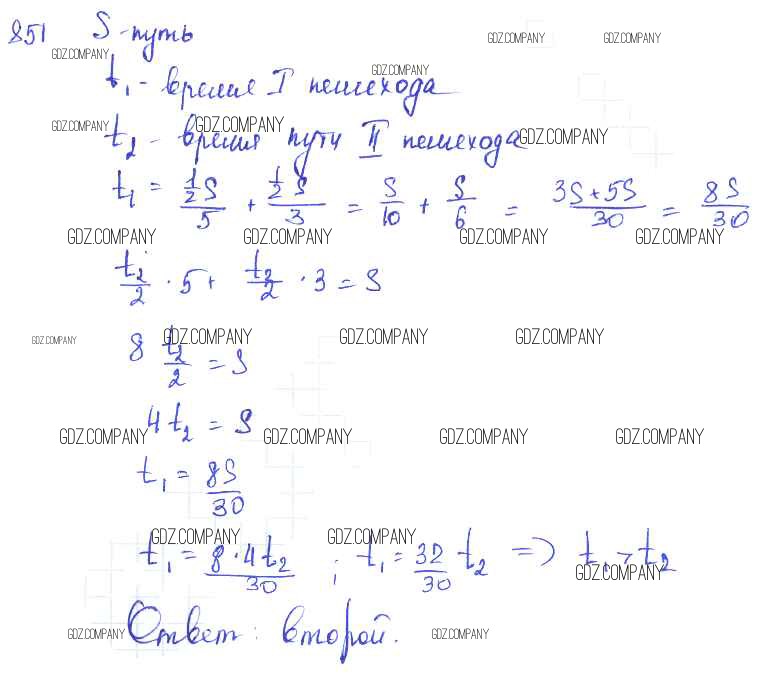 851 S - путь
GDZ.COMPANY GDZ.COMPANY GDZ.COMPANY
t₁ - время I пешехода
GDZ.COMPANY
t₂ - время пути II пешехода
GDZ.COMPANY GDZ.COMPANY GDZ.COMPANY
t₁ = ½S/5 + ½S/3 = S/10 + S/6 = 3S+5S/30 = 8S/30
GDZ.COMPANY GDZ.COMPANY GDZ.COMPANY GDZ.COMPANY
t₂/2 · 5 + t₂/2 · 3 = S
GDZ.COMPANY GDZ.COMPANY GDZ.COMPANY GDZ.COMPANY
8 t₂/2 = S
4t₂ = S
GDZ.COMPANY GDZ.COMPANY GDZ.COMPANY GDZ.COMPANY
t₁ = 8S/30
GDZ.COMPANY GDZ.COMPANY
t₁ = 8·4t₂/30 ; t₁ = 32/30 t₂ => t₁ > t₂
GDZ.COMPANY
Ответ: второй.
GDZ.COMPANY GDZ.COMPANY